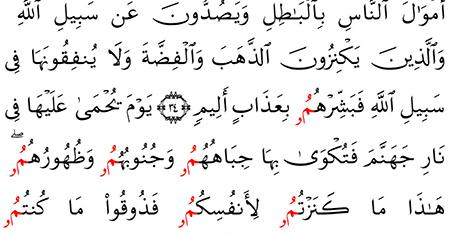 أَمْوَٰلَ ٱلنَّاسِ بِٱلْبَٰطِلِ وَيَصُدُّونَ عَن سَبِيلِ ٱللَّهِ
وَٱلَّذِينَ يَكْنِزُونَ ٱلذَّهَبَ وَٱلْفِضَّةَ وَلَا يُنفِقُونَهَا فِى
سَبِيلِ ٱللَّهِ فَبَشِّرْهُمُۥ بِعَذَابٍ أَلِيمٍ ٣٤ يَوْمَ يُحْمَىٰ عَلَيْهَا فِى
نَارِ جَهَنَّمَ فَتُكْوَىٰ بِهَا جِبَاهُهُمُۥ وَجُنُوبُهُمُۥ وَظُهُورُهُمُۥۖ
هَٰذَا مَا كَنَزْتُمُۥ لِأَنفُسِكُمُۥ فَذُوقُوا۟ مَا كُنتُمُۥ